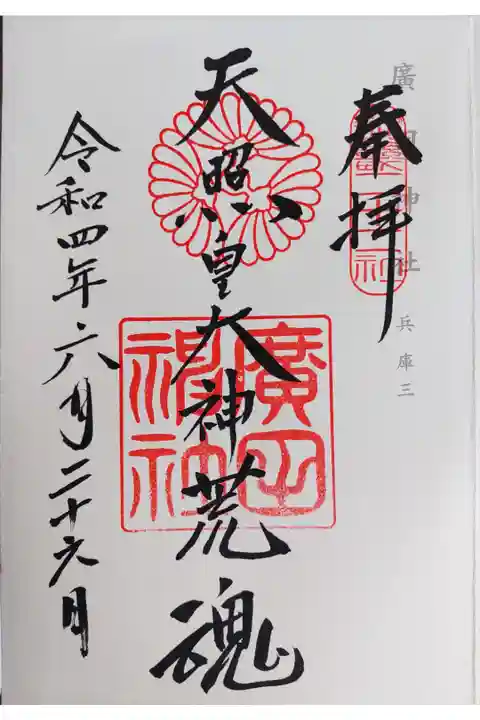 廣田神社 兵庫三
奉拝
天照皇大神荒魂
廣田
神社
令和四年六月二十六日